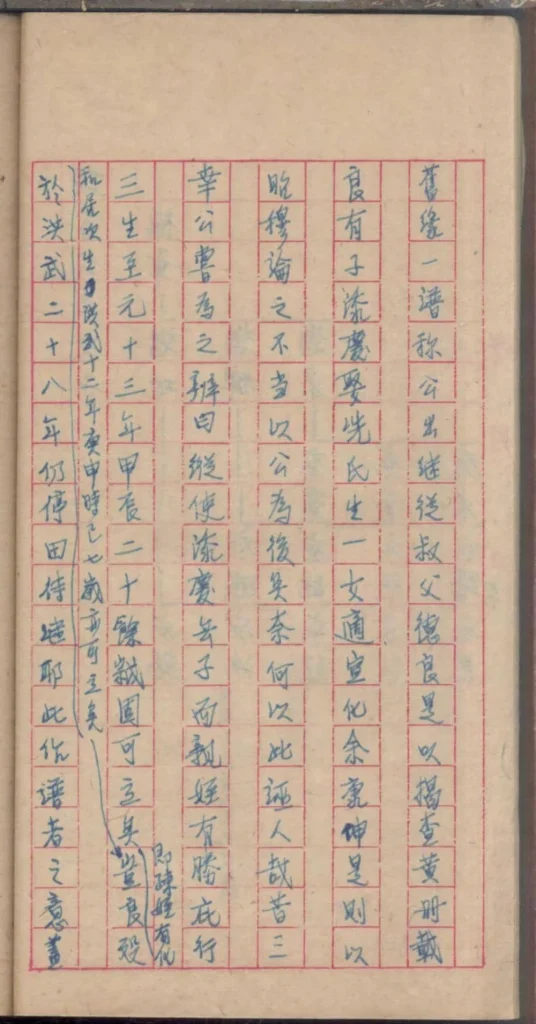 舊緣一譜称公出继從叔父德良是以揭查黄册載
良有子添慶娶冼氏生一女適宣化余康坤是則以
昭穆論之不当以公為後矣奈何以此誣人哉昔三
幸公嘗為之辨曰縱使添慶無子而親姪有勝庇行
三生至元十三年甲辰二十餘歲固可立矣豈良歿
即疎姪有化
和居次生于洪武十二年庚申時已七歲亦可立矣
於洪武二十八年仍停田待继耶此作譜者之意蓋